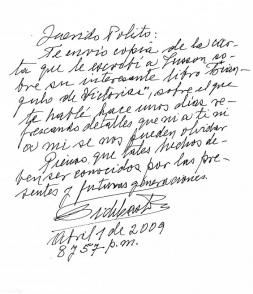 Querido Polito:
Te envío copia de la car-
ta que le escribí a Lusson so-
bre su interesante libro "Trián-
gulo de Victorias", sobre el que
te hablé hace unos días re-
frescando detalles que ni a ti ni
a mí se nos pueden olvidar
Pienso que tales hechos de-
ben ser conocidos por las pre-
sentes y futuras generaciones.
Abril 1 de 2009
8 y 57 p.m.